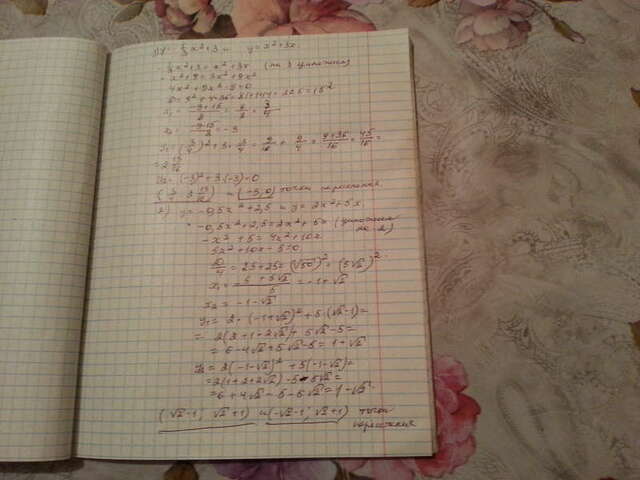 y = x²+3x.
x²+3 = x²+3x (на 3 умножаем)
x²+9 = 3x²+9x
4x²+9x-9=0
D = 9²+4·4·9 = 81+144 = 225 = 15²
x₁ = (-9+15)/8 = 6/8 = 3/4
x₂ = -3
y₁ = (3/4)²+3·3/4 = 9/16 + 9/4 = (9+36)/16 = 45/16 =
= 2 13/16
y₂ = (-3)²+3·(-3) = 0
(3/4; 2 13/16) и (-3; 0) точки пересечения
2) y = -0,5x²+2,5 и y = 2x²+5x
-0,5x²+2,5 = 2x²+5x (умножаем на 2)
-x²+5 = 4x²+10x
5x²+10x-5=0
D/4 = 25+25 = (√50)² = (5√2)²
x₁ = (-5+5√2)/5 = -1+√2
x₂ = -1-√2
y₁ = 2·(-1+√2)²+5·(√2-1) =
= 2(3+1-2√2)+5√2-5 =
= 6-4√2+5√2-5 = 1+√2
y₂ = 2(-1-√2)²+5(-1-√2) =
= 2(1+2+2√2)-5-5√2 =
= 6+4√2-5-5√2 = 1-√2
(√2-1; √2+1) и (-√2-1; √2+1) точки
пересечения